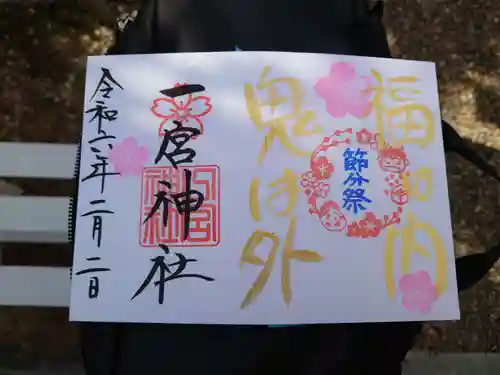 福は内
鬼は外
節分祭
一宮神社
令和六年二月二日